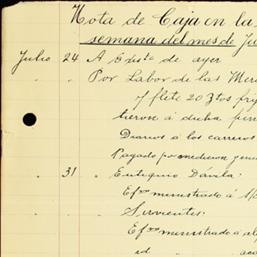 Nota de Caja en la
semana del mes de Ju
Julio 24 A Exist.ᵃ de ayer
" " Por Labor de las Mer
y flete 20 Ztos frij
á dicha
Diarios á los carreros
Pagado por medicion
" 31 " Eutiquio Dávila:
Ef.ᵛᵒ ministrado á
Sirvientes:
Ef.ᵛᵒ ministrado á
id